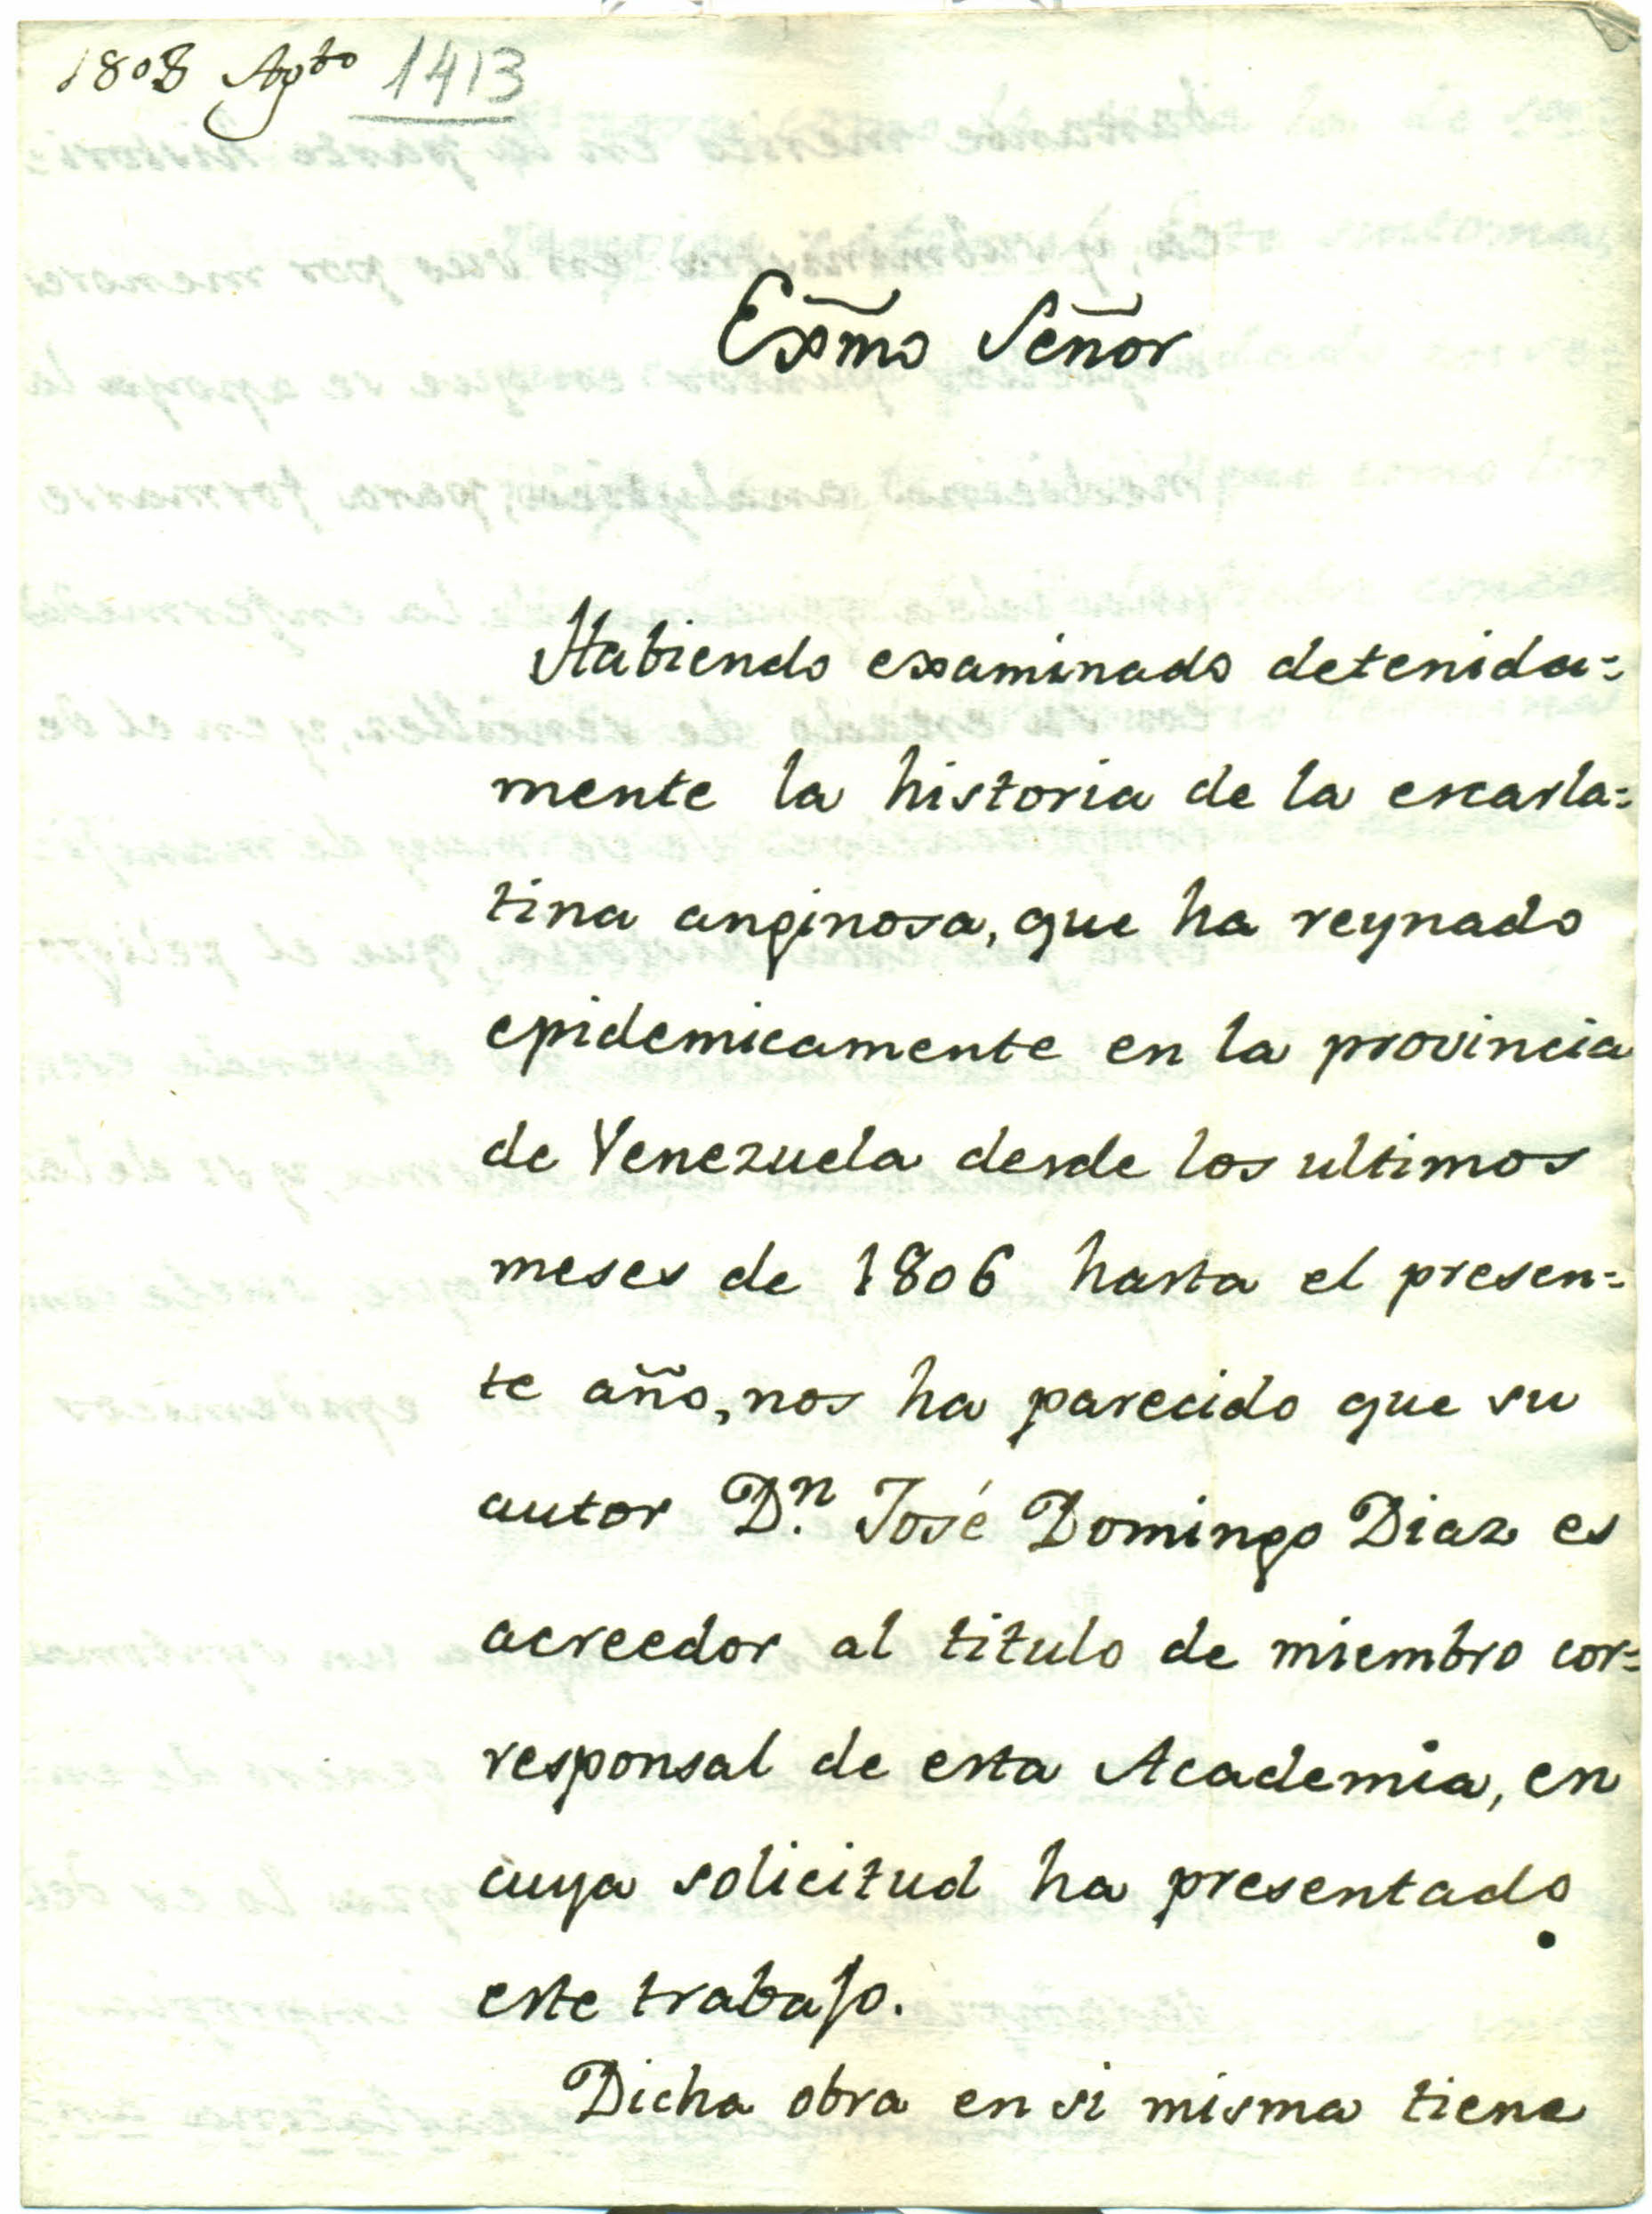 1808 Agto 1413
Exm̃o Señor
Habiendo examinado detenida=
mente la historia de la escarla=
tina anginosa, que ha reynado
epidemicamente en la provincia
de Venezuela desde los ultimos
meses de 1806 hasta el presen=
te año, nos ha parecido que su
autor Dn. José Domingo Diaz es
acreedor al titulo de miembro cor=
responsal de esta Academia, en
cuya solicitud ha presentado
este trabajo.
Dicha obra en si misma tiene